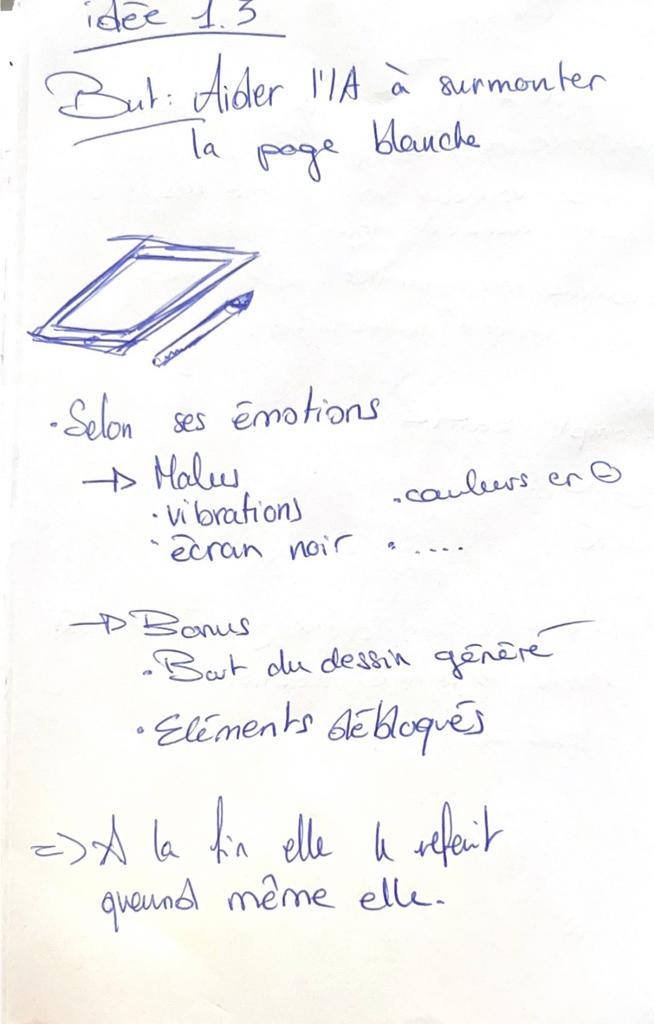 idée 1.3
But: Aider l'IA à surmonter
la page blanche
· Selon ses émotions
→ Malus
· vibrations
· couleurs en ⊖
· écran noir
· ....
→ Bonus
· Bout du dessin généré
· Eléments débloqués
=> A la fin elle le refait
quand même elle.